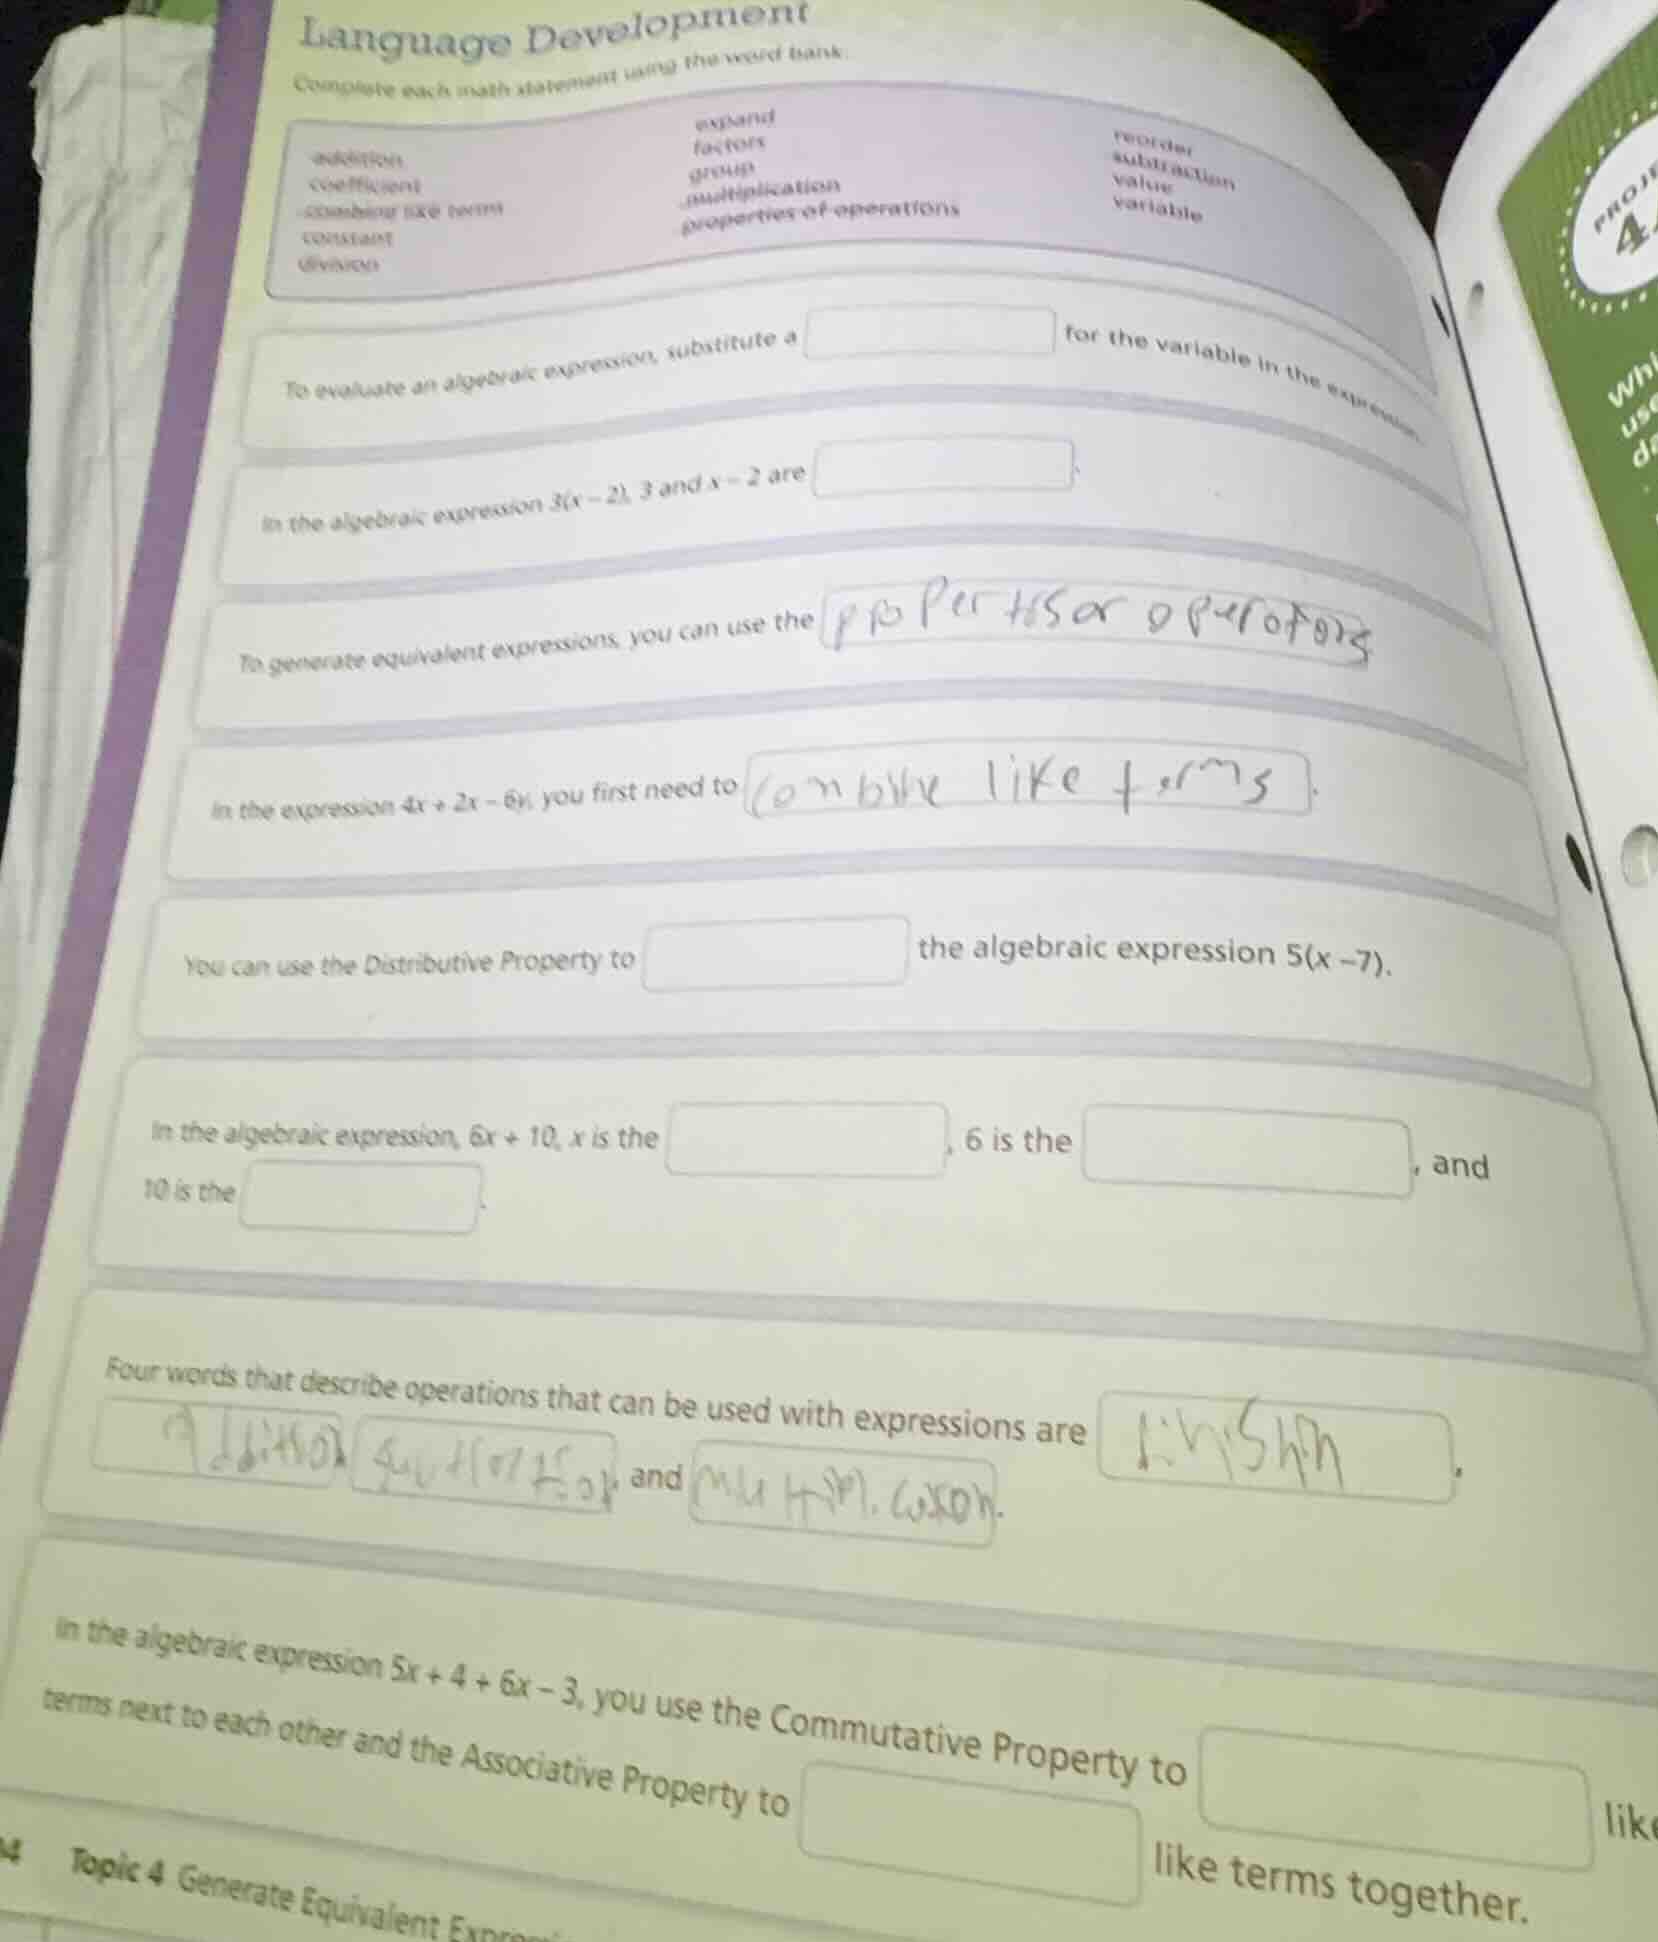 Language Development
Complete each math statement using the word bank.
addition
coefficient
combine like terms
constant
division
expand
factors
group
multiplication
properties of operations
reorder
subtraction
value
variable
To evaluate an algebraic expression, substitute a for the variable in the expression.
In the algebraic expression 3(x – 2), 3 and x – 2 are .
To generate equivalent expressions, you can use the
In the expression 4x + 2x – 6y, you first need to combine like terms.
You can use the Distributive Property to the algebraic expression 5(x –7).
In the algebraic expression, 6x + 10, x is the , 6 is the , and
10 is the .
Four words that describe operations that can be used with expressions are ,
Addition , and .
In the algebraic expression 5x + 4 + 6x – 3, you use the Commutative Property to like
terms next to each other and the Associative Property to like terms together.
4 Topic 4 Generate Equivalent
PROJE
4
Whi
use